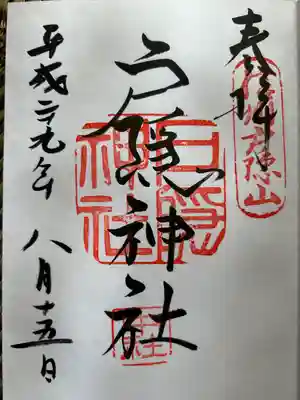 奉拝
信州戸隠山
戸隠神社
戸隠神社
平成二十九年
八月十五日